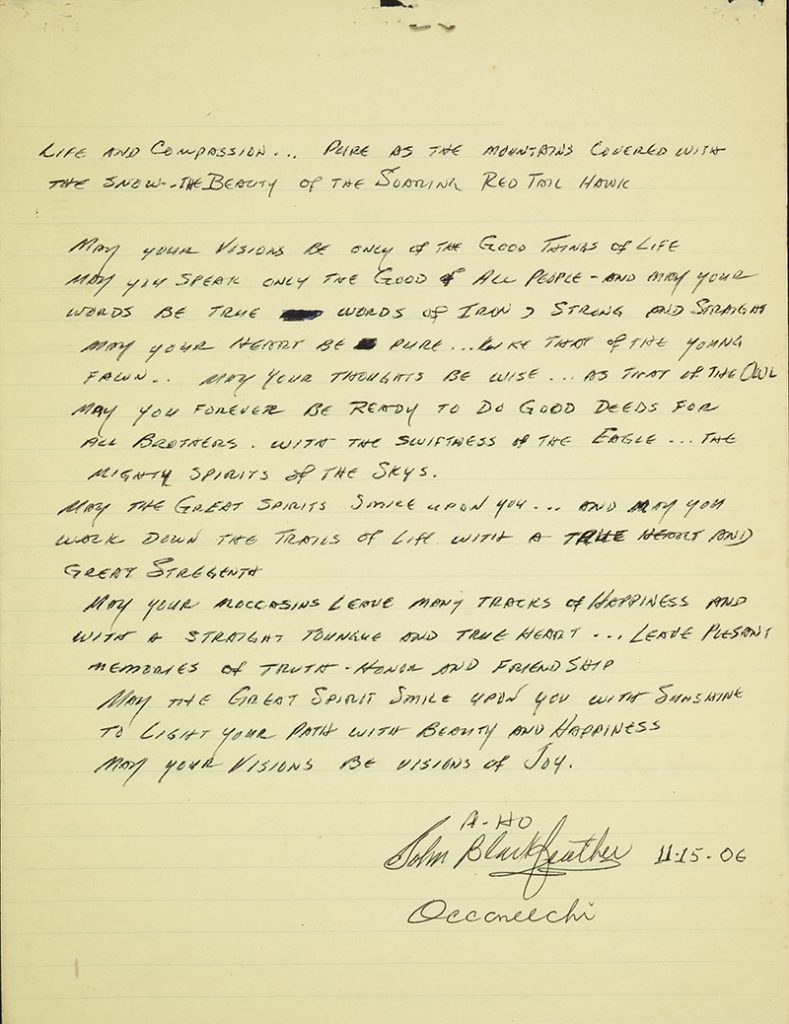 LIFE AND COMPASSION... PURE AS THE MOUNTAINS COVERED WITH
THE SNOW--THE BEAUTY OF THE SOARING RED TAIL HAWK
MAY YOUR VISIONS BE ONLY OF THE GOOD THINGS OF LIFE
MAY YOU SPEAK ONLY THE GOOD OF ALL PEOPLE - AND MAY YOUR
WORDS BE TRUE WORDS OF IRON, STRONG AND STRAIGHT
MAY YOUR HEART BE PURE... LIKE THAT OF THE YOUNG
FAWN.. MAY YOUR THOUGHTS BE WISE... AS THAT OF THE OWL
MAY YOU FOREVER BE READY TO DO GOOD DEEDS FOR
ALL BROTHERS. WITH THE SWIFTNESS OF THE EAGLE... THE
MIGHTY SPIRITS OF THE SKYS.
MAY THE GREAT SPIRITS SMILE UPON YOU... AND MAY YOU
WALK DOWN THE TRAILS OF LIFE WITH A TRUE HEART AND
GREAT STREGENTH
MAY YOUR MOCCASINS LEAVE MANY TRACKS OF HAPPINESS AND
WITH A STRAIGHT TOUNGUE AND TRUE HEART... LEAVE PLESANT
MEMORIES OF TRUTH - HONOR AND FRIENDSHIP
MAY THE GREAT SPIRIT SMILE UPON YOU WITH SUNSHINE
TO LIGHT YOUR PATH WITH BEAUTY AND HAPPINESS
MAY YOUR VISIONS BE VISIONS OF JOY.
A-HO
John Blackfeather 11-15-06
Occoneechi